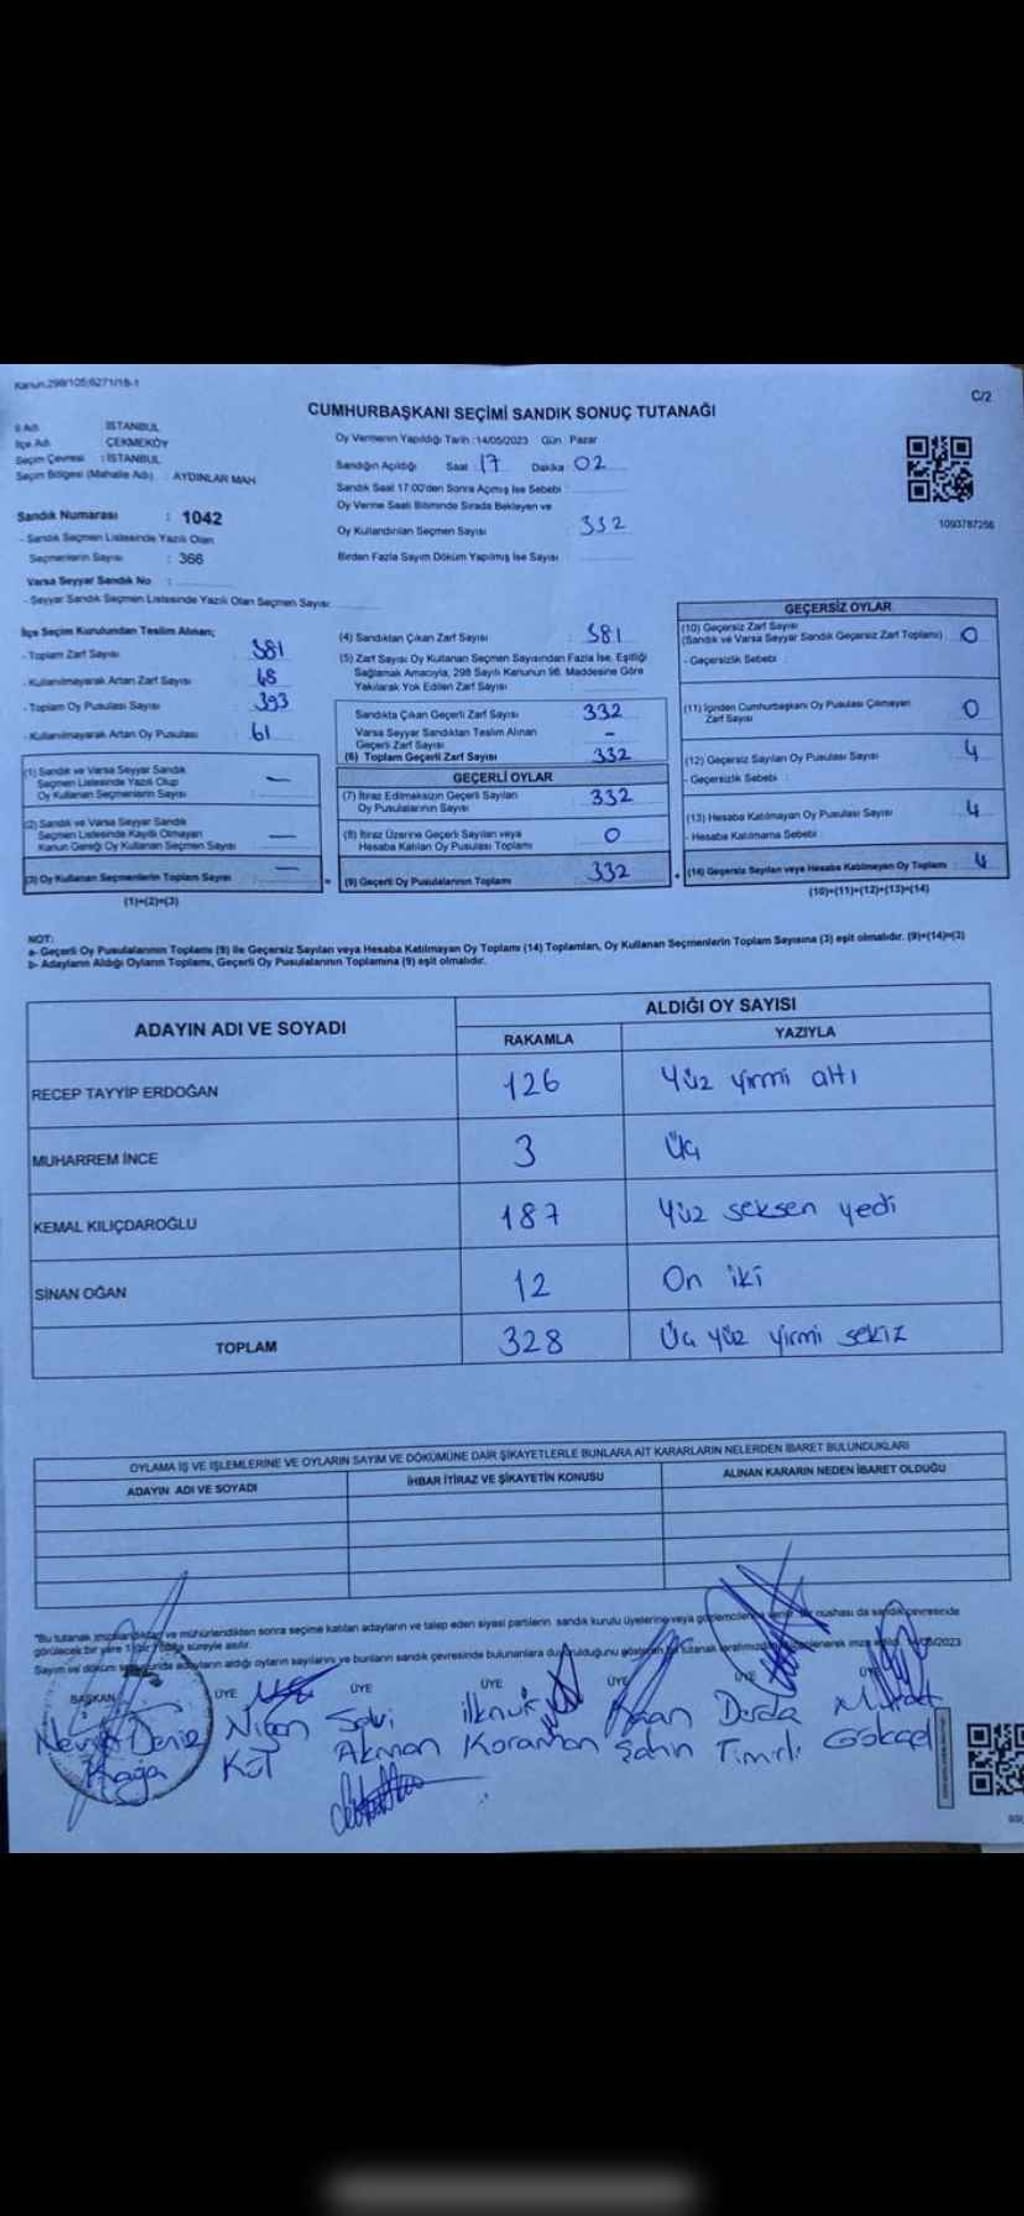 Kanun.298/105;6271/18-1
C/2
CUMHURBAŞKANI SEÇİMİ SANDIK SONUÇ TUTANAĞI
İl Adı : İSTANBUL
İlçe Adı : ÇEKMEKÖY
Seçim Çevresi : İSTANBUL
Seçim Bölgesi (Mahalle Adı) : AYDINLAR MAH
Sandık Numarası : 1042
- Sandık Seçmen Listesinde Yazılı Olan
Seçmenlerin Sayısı : 366
Varsa Seyyar Sandık No :
- Seyyar Sandık Seçmen Listesinde Yazılı Olan Seçmen Sayısı:
Oy Vermenin Yapıldığı Tarih :14/05/2023 Gün: Pazar
Sandığın Açıldığı Saat 17 Dakika 02
Sandık Saat 17:00'den Sonra Açılmış İse Sebebi :
Oy Verme Saati Bitiminde Sırada Bekleyen ve
Oy Kullandırılan Seçmen Sayısı : 332
Birden Fazla Sayım Döküm Yapılmış İse Sayısı :
1093787256
İlçe Seçim Kurulundan Teslim Alınan;
- Toplam Zarf Sayısı : 381
- Kullanılmayarak Artan Zarf Sayısı : 48
- Toplam Oy Pusulası Sayısı : 393
- Kullanılmayarak Artan Oy Pusulası : 61
(1) Sandık ve Varsa Seyyar Sandık
Seçmen Listesinde Yazılı Olup
Oy Kullanan Seçmenlerin Sayısı : —
(2) Sandık ve Varsa Seyyar Sandık
Seçmen Listesinde Kayıtlı Olmayan
Kanun Gereği Oy Kullanan Seçmen Sayısı : —
(3) Oy Kullanan Seçmenlerin Toplam Sayısı : —
(1)+(2)=(3)
(4) Sandıktan Çıkan Zarf Sayısı : 381
(5) Zarf Sayısı Oy Kullanan Seçmen Sayısından Fazla İse, Eşitliği
Sağlamak Amacıyla, 298 Sayılı Kanunun 98. Maddesine Göre
Yakılarak Yok Edilen Zarf Sayısı :
Sandıkta Çıkan Geçerli Zarf Sayısı : 332
Varsa Seyyar Sandıktan Teslim Alınan
Geçerli Zarf Sayısı : -
(6) Toplam Geçerli Zarf Sayısı : 332
GEÇERLİ OYLAR
(7) İtiraz Edilmeksizin Geçerli Sayılan
Oy Pusulalarının Sayısı : 332
(8) İtiraz Üzerine Geçerli Sayılan veya
Hesaba Katılan Oy Pusulası Toplamı : 0
(9) Geçerli Oy Pusulalarının Toplamı : 332
GEÇERSİZ OYLAR
(10) Geçersiz Zarf Sayısı
(Sandık ve Varsa Seyyar Sandık Geçersiz Zarf Toplamı) : 0
- Geçersizlik Sebebi :
(11) İçinden Cumhurbaşkanı Oy Pusulası Çıkmayan
Zarf Sayısı : 0
(12) Geçersiz Sayılan Oy Pusulası Sayısı : 4
- Geçersizlik Sebebi :
(13) Hesaba Katılmayan Oy Pusulası Sayısı : 4
- Hesaba Katılmama Sebebi :
(14) Geçersiz Sayılan veya Hesaba Katılmayan Oy Toplamı : 4
(10)+(11)+(12)+(13)=(14)
NOT:
a- Geçerli Oy Pusulalarının Toplamı (9) ile Geçersiz Sayılan veya Hesaba Katılmayan Oy Toplamı (14) Toplamları, Oy Kullanan Seçmenlerin Toplam Sayısına (3) eşit olmalıdır. (9)+(14)=(3)
b- Adayların Aldığı Oyların Toplamı, Geçerli Oy Pusulalarının Toplamına (9) eşit olmalıdır.
ADAYIN ADI VE SOYADI
ALDIĞI OY SAYISI
RAKAMLA YAZIYLA
RECEP TAYYİP ERDOĞAN 126 Yüz yirmi altı
MUHARREM İNCE 3 Üç
KEMAL KILIÇDAROĞLU 187 Yüz seksen yedi
SİNAN OĞAN 12 On iki
TOPLAM 328 Üç yüz yirmi sekiz
OYLAMA İŞ VE İŞLEMLERİNE VE OYLARIN SAYIM VE DÖKÜMÜNE DAİR ŞİKAYETLERLE BUNLARA AİT KARARLARIN NELERDEN İBARET BULUNDUKLARI
ADAYIN ADI VE SOYADI İHBAR İTİRAZ VE ŞİKAYETİN KONUSU ALINAN KARARIN NEDEN İBARET OLDUĞU
"Bu tutanak ve mühürlendikten sonra seçime katılan adayların ve talep eden siyasi partilerin sandık kurulu üyelerine veya nüshası da sandık çevresinde
görülecek bir yere süreyle asılır.
Sayım ve döküm adayların aldığı oyların sayılarını ve bunların sandık çevresinde bulunanlara duyurulduğunu tutanak imza
BAŞKAN ÜYE ÜYE ÜYE ÜYE ÜYE ÜYE
Deniz Kaya
Koraman
Şahin